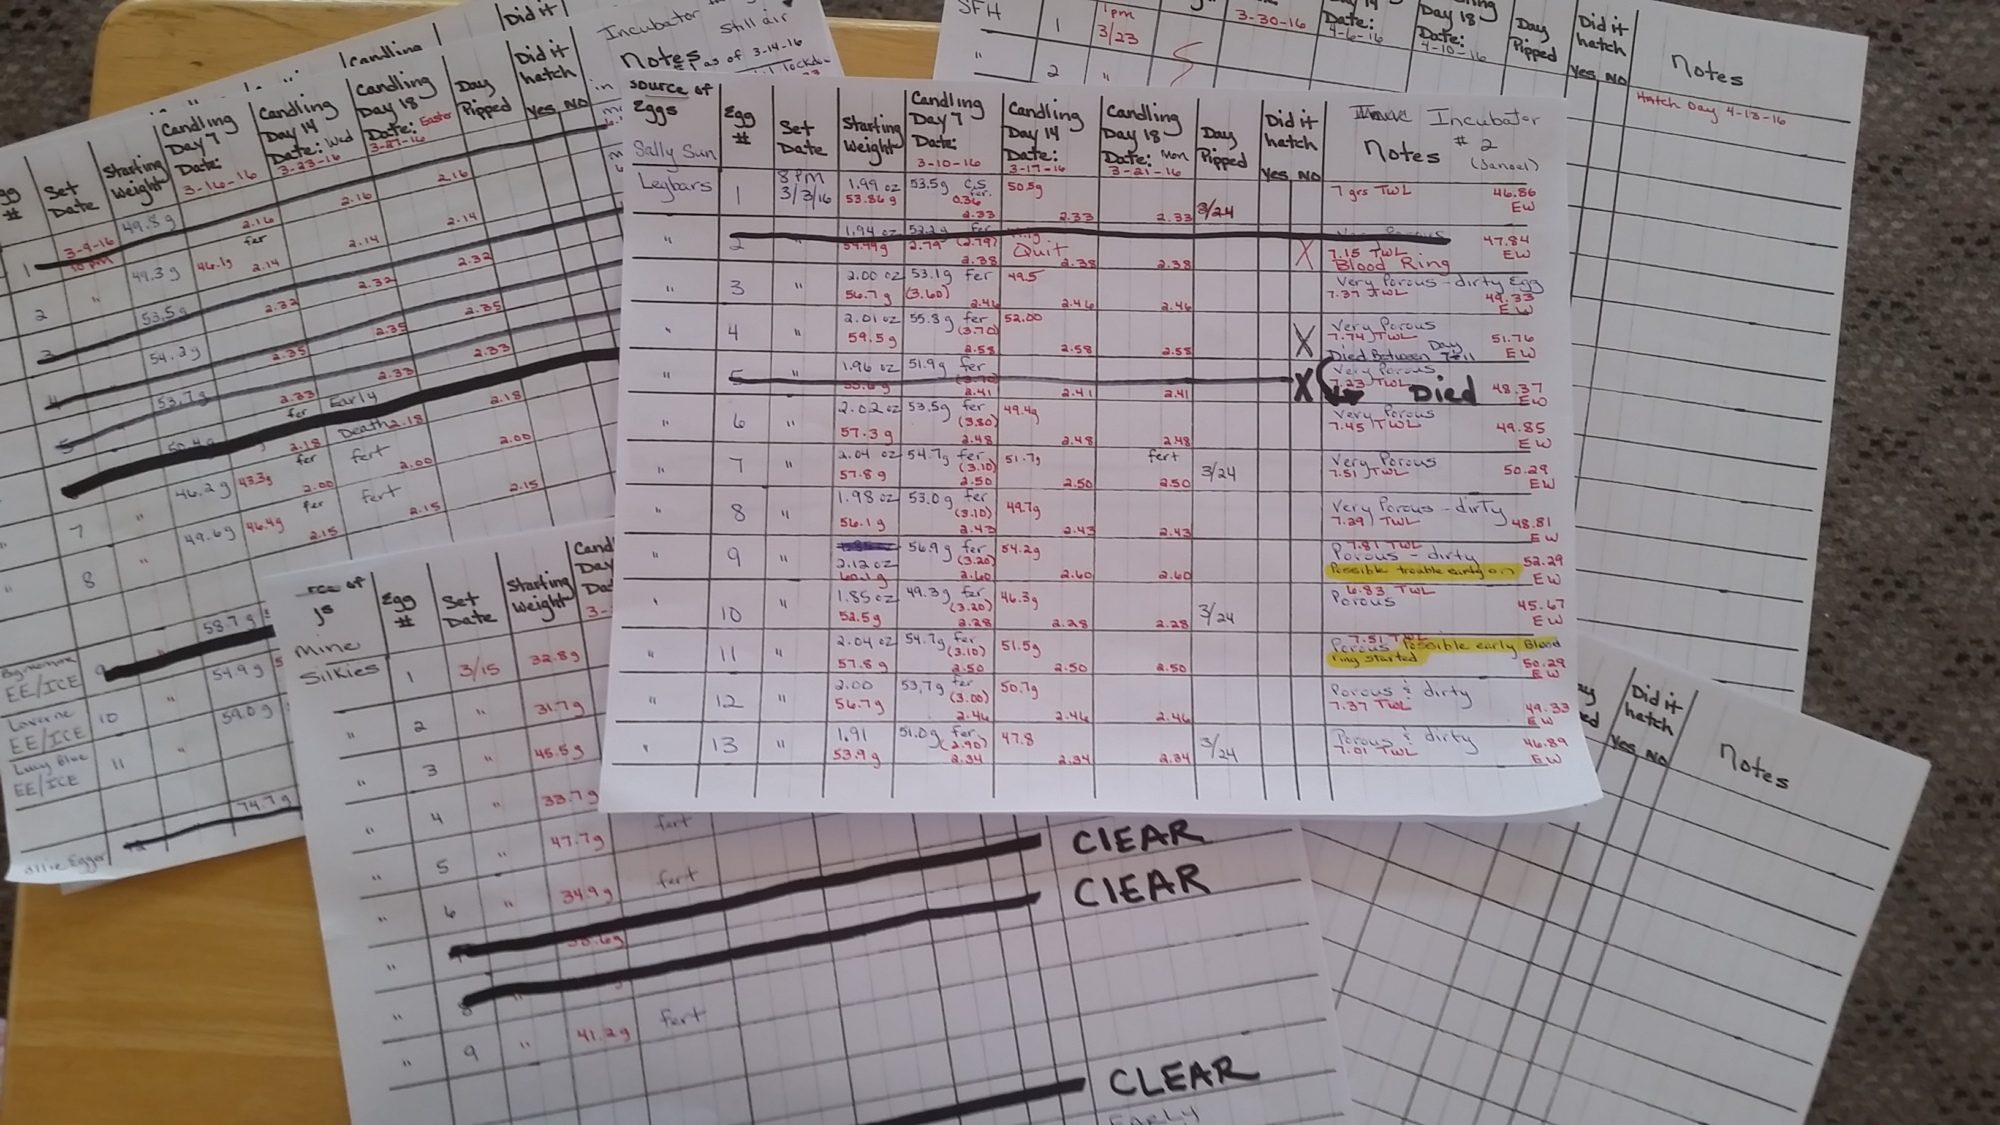 Did it
Candling
Incubator
Still air
Candling
Day 7
Date:
3-16-16
Candling
Day 14
Date: Wed
3-23-16
Candling
Day 18
Date: Easter
3-27-16
Day
Pipped
Did it
hatch
Yes NO
Notes
as of 3-14-16
#
Set
Date
Starting
Weight
1 3-9-16 49.8g 2.16 2.16 2.16
10 pm fer
2 " 49.3g 46.1g 2.14 2.14 2.14
3 53.5g 2.32 2.32 2.32
4 54.2g 2.35 2.35 2.35
5 53.7g 2.33 2.33 2.33
fer Early
Death
50.4g 2.18 2.18 2.18
fer fert
7 " 46.2g 43.3g 2.00 2.00 2.00
fer fert
8 " 49.6g 46.4g 2.15 2.15 2.15
9 58.7g
EE/ICE
" 54.9g
Laverne 10
EE/ICE
59.0g
Lucy Blue 11 "
EE/ICE
74.7g
Ollie Egger
SFH 1 1pm
3/23
" 2 "
3-30-16
Date:
4-6-16
Day 18
Date:
4-10-16
Day
Pipped
Did it
hatch
Yes NO
Notes
Hatch Day 4-13-16
Source of
Eggs
Sally Sun
Egg
#
Set
Date
Starting
Weight
Candling
Day 7
Date:
3-10-16
Candling
Day 14
Date:
3-17-16
Candling
Day 18
Date: Mon
3-21-16
Day
Pipped
Did it
hatch
Yes NO
Incubator
Notes # 2
(Janoel)
Legbars 1 8 PM 1.99 oz 53.5g C.S 50.5g 7 grs TWL 46.86
3/3/16 53.86g fer. 0.36 3/24 EW
2.33 2.33 2.33
" 2 " 1.94 oz 53.2g fer Very Porous 47.84
2.79 (2.79) Quit X 7.15 TWL EW
2.38 2.38 2.38 Blood Ring
" 3 " 2.00 oz 53.1g fer 49.5 Very Porous - dirty Egg
56.7g (3.60) 7.37 TWL 49.33
2.46 2.46 2.46 EW
" 4 " 2.01 oz 55.8g fer 52.00 Very Porous
59.5g (3.70) X 7.74 TWL 51.76
2.58 2.58 2.58 Died Between Day 7-11 EW
" 5 " 1.96 oz 51.9g fer Very Porous
55.6g (3.70) X 7.23 TWL Died 48.37
2.41 2.41 2.41 EW
" 6 " 2.02 oz 53.5g fer 49.4g Very Porous
57.3g (3.80) 7.45 TWL 49.85
2.48 2.48 2.48 EW
" 7 " 2.04 oz 54.7g fer 51.7g fert Very Porous
57.8g (3.10) 3/24 7.51 TWL 50.29
2.50 2.50 2.50 EW
" 8 " 1.98 oz 53.0g fer 49.7g Very Porous - dirty
56.1g (3.10) 7.29 TWL 48.81
2.43 2.43 2.43 EW
" 9 " 56.9g fer 54.2g 7.81 TWL
2.12 oz (3.20) Porous - dirty 52.29
60.1g 2.60 2.60 2.60 Possible trouble early on EW
" 10 " 1.85 oz 49.3g fer 46.3g 6.83 TWL
52.5g (3.20) 3/24 Porous 45.67
2.28 2.28 2.28 EW
" 11 " 2.04 oz 54.7g fer 51.5g 7.51 TWL
57.8g (3.10) Porous Possible early Blood
2.50 2.50 2.50 ring started 50.29
EW
" 12 " 2.00 53.7g fer 50.7g Porous & dirty
56.7g (3.00) 7.37 TWL 49.33
2.46 2.46 2.46 EW
" 13 " 1.91 51.0g fer 47.8 3/24 Porous & dirty
53.9g (2.90) 7.01 TWL 46.89
2.34 2.34 2.34 EW
Egg
#
Set
Date
Starting
Weight
Mine
Silkies 1 3/15 32.8g
" 2 " 31.7g
" 3 " 45.5g
" 4 " 33.7g
" 5 " 47.7g fert
" 6 " 34.9g fert
" CLEAR
" 8 CLEAR
" 9 " 41.2g fert
CLEAR
EARLY
Did it
hatch
Yes NO
Notes